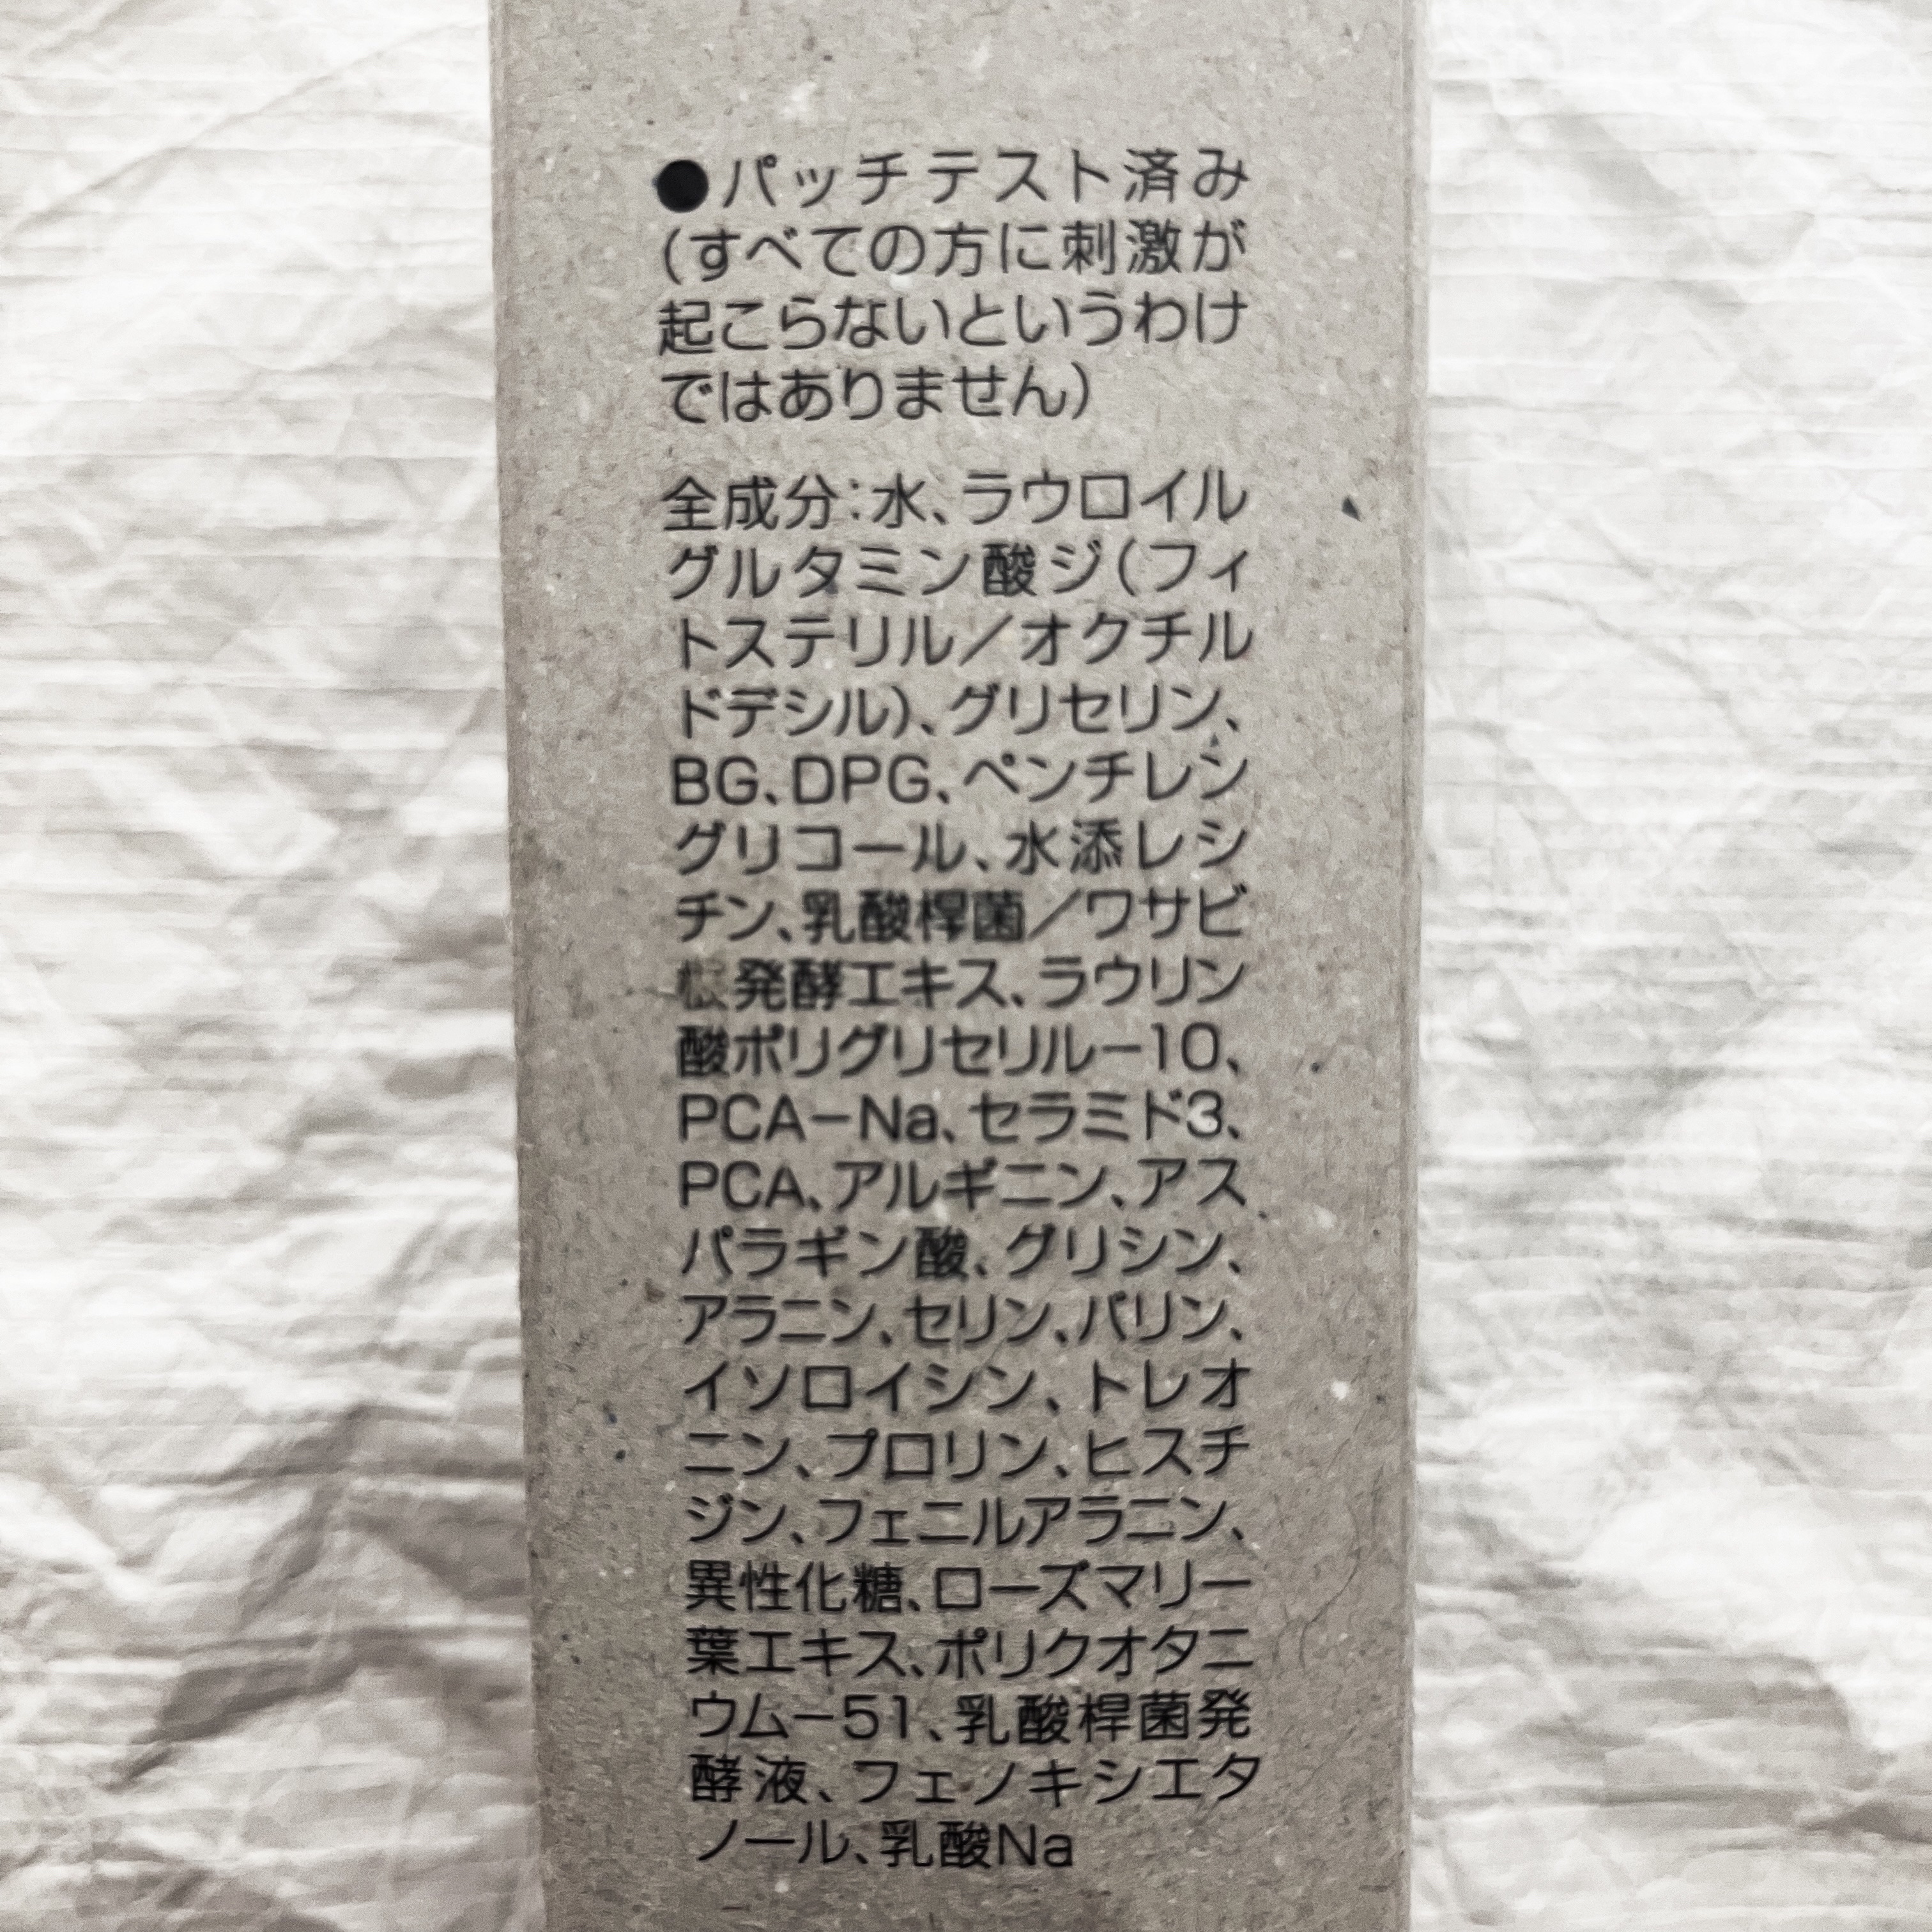 ●パッチテスト済み
(すべての方に刺激が
起こらないというわけ
ではありません)
全成分:水、ラウロイル
グルタミン酸ジ(フィ
トステリル/オクチル
ドデシル)、グリセリン、
BG、DPG、ペンチレン
グリコール、水添レシ
チン、乳酸桿菌/ワサビ
根発酵エキス、ラウリン
酸ポリグリセリル-10、
PCA-Na、セラミド3、
PCA、アルギニン、アス
パラギン酸、グリシン、
アラニン、セリン、バリン、
イソロイシン、トレオ
ニン、プロリン、ヒスチ
ジン、フェニルアラニン、
異性化糖、ローズマリー
葉エキス、ポリクオタニ
ウム-51、乳酸桿菌発
酵液、フェノキシエタ
ノール、乳酸Na